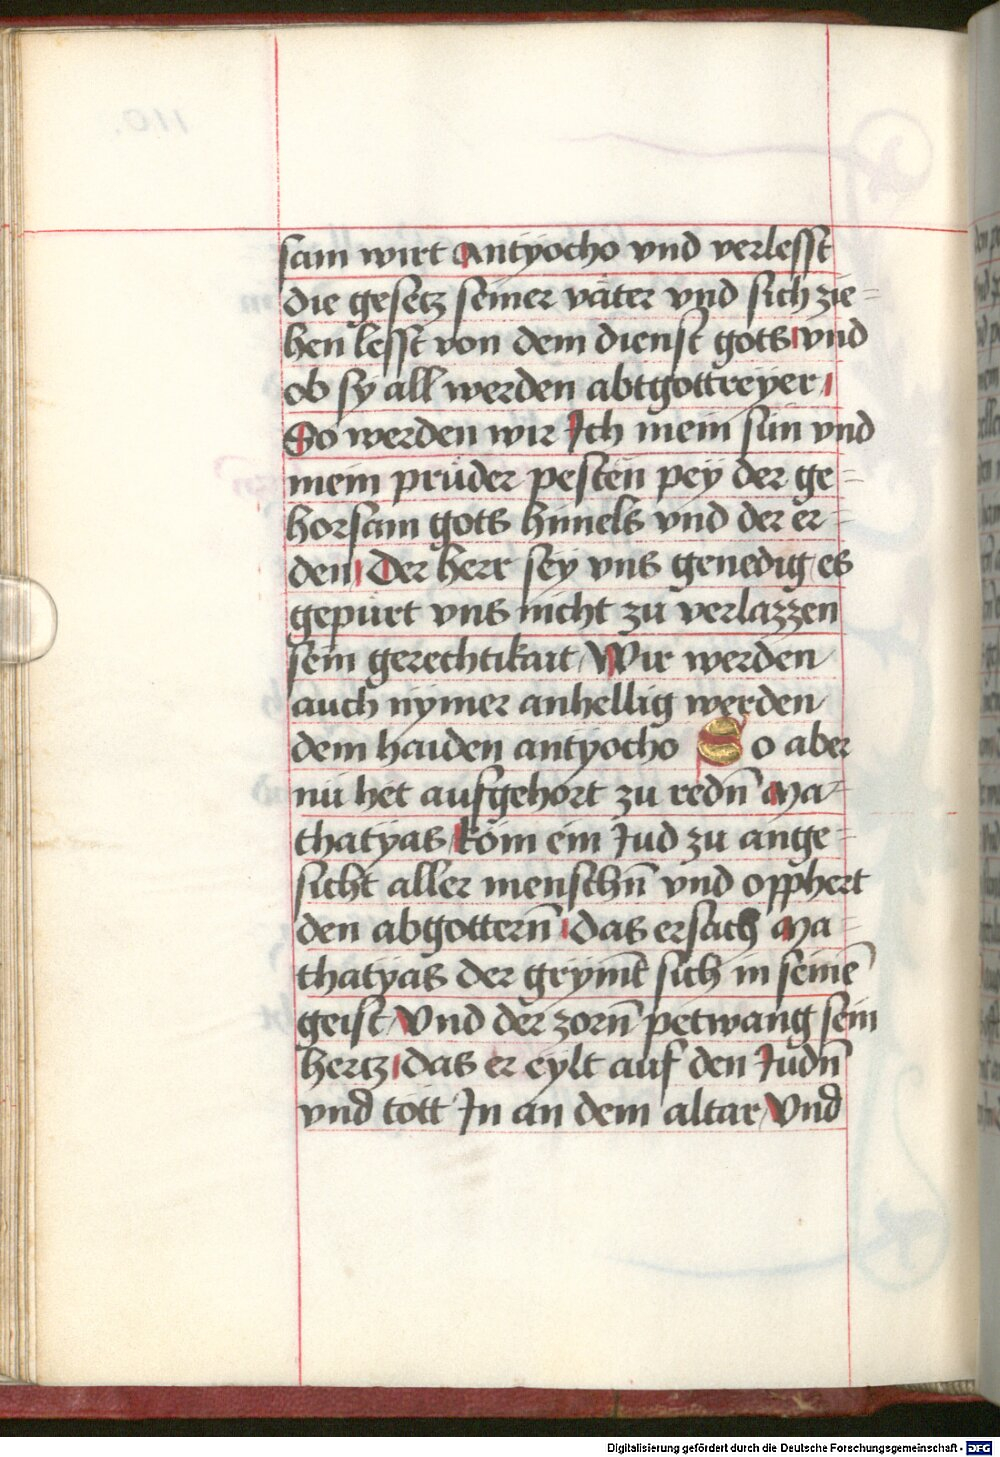 sam wirt Antÿocho vnd verlesst
die gesetz seiner väter vnd sich zie=
hen lesst von dem dienst gots vnd
ob sÿ all werden abtgottreÿer
So werden wir Ich mein sün vnd
mein prüder pesten peÿ der ge=
horsam gots himels vnd der er=
den Der herr seÿ vns genedig es
gepürt vns nicht zu verlazzen
sein gerechtikait Wir werden
auch nÿmer anhellig werden
dem haiden antÿocho So aber
nu het aufgehört zu redn̄ Ma=
thatÿas köm ein Jud zu ange=
sicht aller menschn̄ vnd opphert
den abgottern̄ das ersach Ma=
thatÿas der grÿmt sich in seinē
geist Vnd der zorn̄ petwang sein
hertz das er eylt auf den Judn̄
vnd tott In an dem altar Vnd
Digitalisierung gefördert durch die Deutsche Forschungsgemeinschaft - DFG